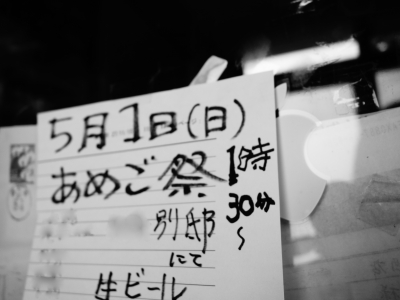 5月1日(日)
あめご祭
1時
30分
~
別邸
にて
生ビール